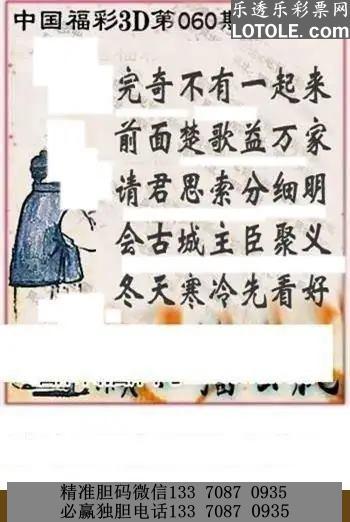 中国福彩3D第060期
乐透乐彩票网
LOTOLE.com
完奇不有一起来
前面楚歌益万家
请君思索分细明
会古城主臣聚义
冬天寒冷先看好
精准胆码微信133 7087 0935
必赢独胆电话133 7087 0935